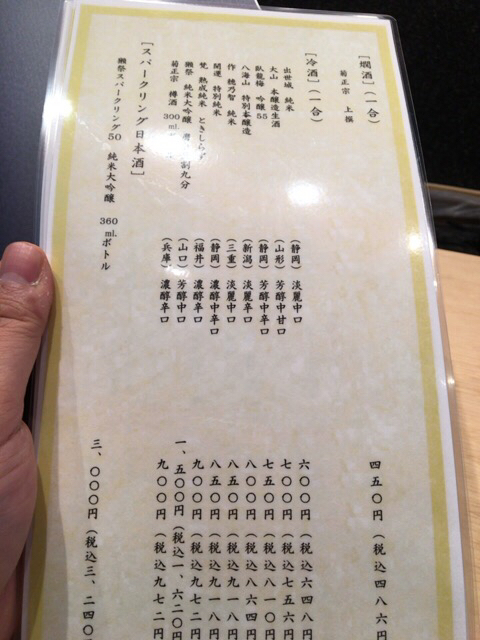 [燗酒](一合)
菊正宗 上撰 四五〇円(税込四八六円
[冷酒](一合)
出世城 純米 (静岡) 淡麗中口 六〇〇円(税込六四八円
大山 本醸造生酒 (山形) 芳醇中甘口 七〇〇円(税込七五六円
臥龍梅 吟醸55 (静岡) 芳醇中辛口 七五〇円(税込八一〇円
八海山 特別本醸造 (新潟) 淡麗辛口 八〇〇円(税込八六四円
作 穂乃智 純米 (三重) 淡麗中口 八五〇円(税込九一八円
開運 特別純米 (静岡) 濃醇中辛口 八五〇円(税込九一八円
梵 熟成純米 ときしらず (福井) 濃醇辛口 九〇〇円(税込九七二円
獺祭 純米大吟醸 割九分 (山口) 芳醇中口 一、五〇〇円(税込一、六二〇円
菊正宗 樽酒 300ml (兵庫) 濃醇辛口 九〇〇円(税込九七二円
[スパークリング日本酒]
獺祭スパークリング50 純米大吟醸 360ml.ボトル 三、〇〇〇円(税込三、二四〇